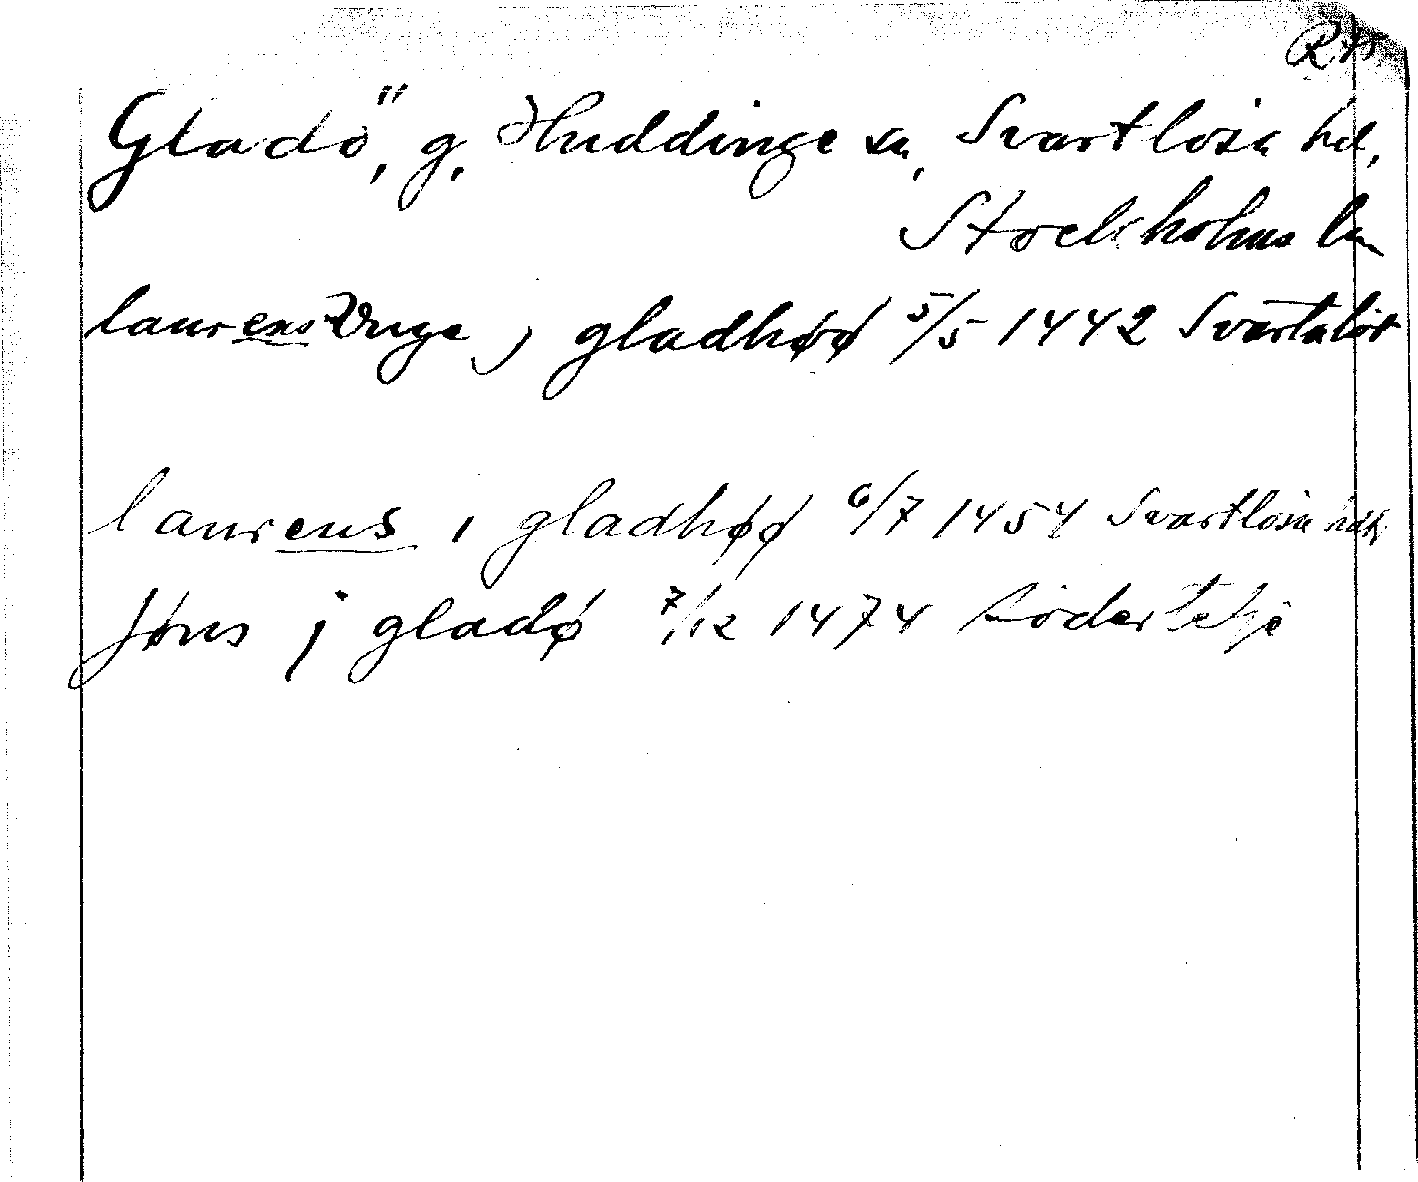 Gladö, g. Huddinge sn, Svartlösa hd,
Stockholms län
laurens Unge j gladhøø 5/5 1442 Svartalöt
laurens i gladhøø 6/7 1454 Svartlösa hdt.
Jøns j gladø 7/12 1474 Södertelje